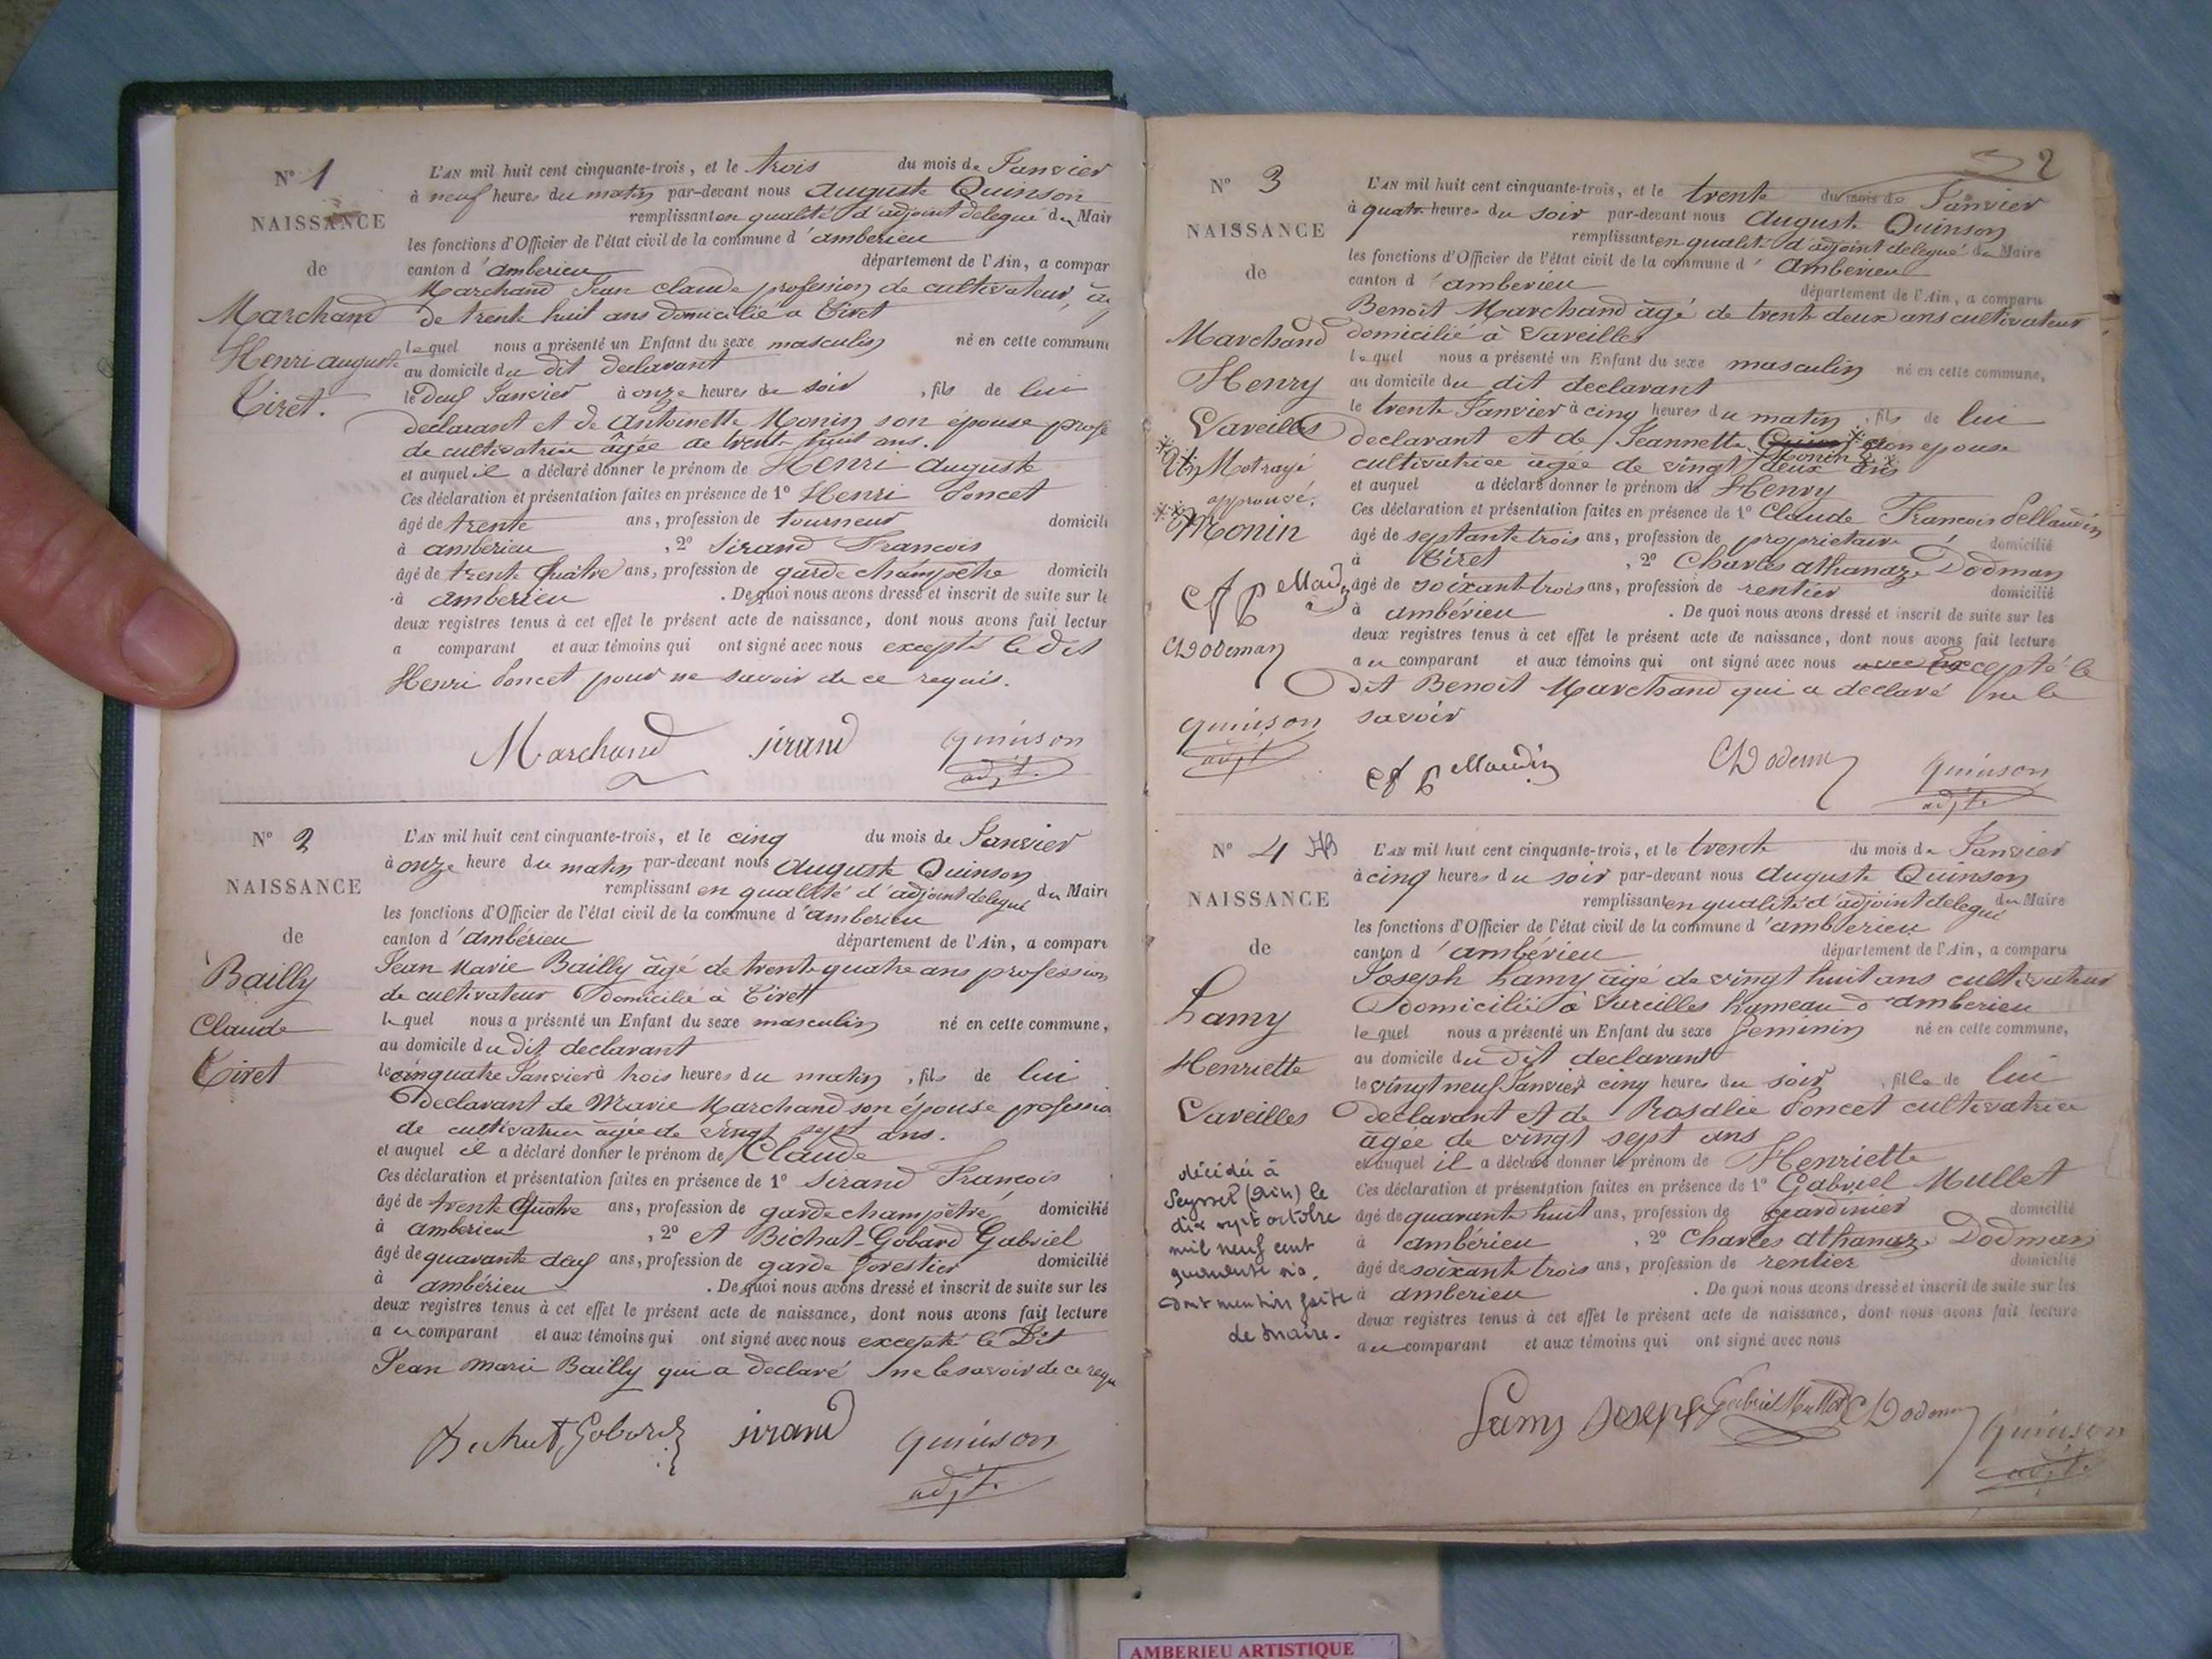 N° 1
NAISSANCE
de
Marchand
Henri auguste
Tiret.
L'AN mil huit cent cinquante-trois, et le trois du mois de Janvier
à neuf heures du matin par-devant nous Auguste Quinson
remplissant en qualité d'adjoint delegue du Mair
les fonctions d'Officier de l'état civil de la commune d'amberieu
canton d'amberieu département de l'Ain, a compar
Marchand Jean claude profession de cultivateur, âg
de trente huit ans domicilié a Tiret
lequel nous a présenté un Enfant du sexe masculin né en cette commune
au domicile du dit declarant
le deux Janvier à onze heures du soir, fils de lui
declarant et de Antoinette Monin son épouse profe
de cultivatrice âgée de trente huit ans.
et auquel il a déclaré donner le prénom de Henri Auguste
Ces déclaration et présentation faites en présence de 1° Henri Poncet
âgé de trente ans, profession de tourneur domicili
à amberieu, 2° Sirand Francois
âgé de trente quatre ans, profession de garde champêtre domicili
à amberieu. De quoi nous avons dressé et inscrit de suite sur le
deux registres tenus à cet effet le présent acte de naissance, dont nous avons fait lectur
a comparant et aux témoins qui ont signé avec nous excepté le dit
Henri Poncet pour ne savoir de ce requis.
Marchand sirand quinson
adjt.
N° 2
NAISSANCE
de
Bailly
Claude
Tiret
L'AN mil huit cent cinquante-trois, et le cinq du mois de Janvier
à onze heure du matin par-devant nous Auguste Quinson
remplissant en qualité d'adjoint delegué du Maire
les fonctions d'Officier de l'état civil de la commune d'amberieu
canton d'ambérieu département de l'Ain, a compar
Jean Marie Bailly âgé de trente quatre ans profession
de cultivateur Domicilié à Tiret
lequel nous a présenté un Enfant du sexe masculin né en cette commune,
au domicile du dit declarant
le quatre Janvier à trois heures du matin, fils de lui
declarant de Marie Marchand son épouse professio
de cultivatrice âgée de vingt sept ans.
et auquel il a déclaré donner le prénom de Claude
Ces déclaration et présentation faites en présence de 1° Sirand Francois
âgé de trente quatre ans, profession de garde champêtre domicilié
à amberieu, 2° et Bichat-Gobard Gabriel
âgé de quarante deux ans, profession de garde forestier domicilié
à ambérieu. De quoi nous avons dressé et inscrit de suite sur les
deux registres tenus à cet effet le présent acte de naissance, dont nous avons fait lecture
au comparant et aux témoins qui ont signé avec nous excepté le Dit
Jean Marie Bailly qui a declaré ne le savoir de ce requ
Bichat Gobard sirand quinson
adjt.
2
N° 3
NAISSANCE
de
Marchand
Henry
Vareilles
Un Mot rayé
approuvé.
Monin
CDodeman
quinson
adjt
L'AN mil huit cent cinquante-trois, et le trente du mois de Janvier
à quatre heures du soir par-devant nous August Quinson
remplissant en qualité d'adjoint delegué du Maire
les fonctions d'Officier de l'état civil de la commune d'Ambérieu
canton d'amberieu département de l'Ain, a comparu
Benoit Marchand âgé de trente deux ans cultivateur
domicilié à Vareilles
lequel nous a présenté un Enfant du sexe masculin né en cette commune,
au domicile du dit declarant
le trente Janvier à cinq heures du matin, fils de lui
declarant et de Jeannette son epouse
Monin
cultivatrice agée de vingt deux ans
et auquel a déclaré donner le prénom de Henry
Ces déclaration et présentation faites en présence de 1° Claude Francois Pellaudin
âgé de septante trois ans, profession de proprietaire domicilié
à Tiret, 2° Charles athanaze Dodman
âgé de soixante trois ans, profession de rentier domicilié
à ambérieu. De quoi nous avons dressé et inscrit de suite sur les
deux registres tenus à cet effet le présent acte de naissance, dont nous avons fait lecture
au comparant et aux témoins qui ont signé avec nous excepté le
dit Benoit Marchand qui a declaré ne le
savoir
CDodeman quinson
adjt.
N° 4
NAISSANCE
de
Lamy
Henriette
Vareilles
décédée à
Seyssel (Ain) le
dix sept octobre
mil neuf cent
quarante
dont mention faite
L'AN mil huit cent cinquante-trois, et le trente du mois de Janvier
à cinq heures du soir par-devant nous Auguste Quinson
remplissant en qualité d'adjoint delegué du Maire
les fonctions d'Officier de l'état civil de la commune d'amberieu
canton d'ambérieu département de l'Ain, a comparu
Joseph Lamy âgé de vingt huit ans cultivateur
Domicilié à Vareilles hameau d'amberieu
lequel nous a présenté un Enfant du sexe feminin né en cette commune,
au domicile du dit declarant
le vingt neuf Janvier à cinq heures du soir, fille de lui
declarant et de Rosalie Poncet cultivatrice
agée de vingt sept ans
et auquel il a déclaré donner le prénom de Henriette
Ces déclaration et présentation faites en présence de 1° Gabriel Mullet
âgé de quarante huit ans, profession de jardinier domicilié
à ambérieu, 2° Charles athanaze Dodman
âgé de soixante trois ans, profession de rentier domicilié
à amberieu. De quoi nous avons dressé et inscrit de suite sur les
deux registres tenus à cet effet le présent acte de naissance, dont nous avons fait lecture
au comparant et aux témoins qui ont signé avec nous
Lamy Joseph Gabriel Mullet CDodeman quinson
adjt.
AMBERIEU ARTISTIQUE